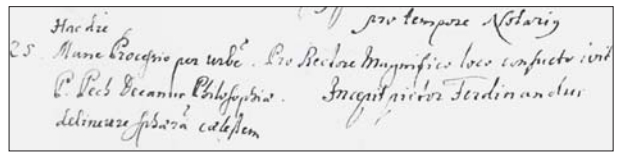 Hac die pro tempore Notariq
25. Mane Processio per urbē. Pro Rectore Magnifico loco consueto ivit
P. Pech Decanus Philosophiæ. Incepit pictor Ferdinandus
delineare sphærā cœlestem